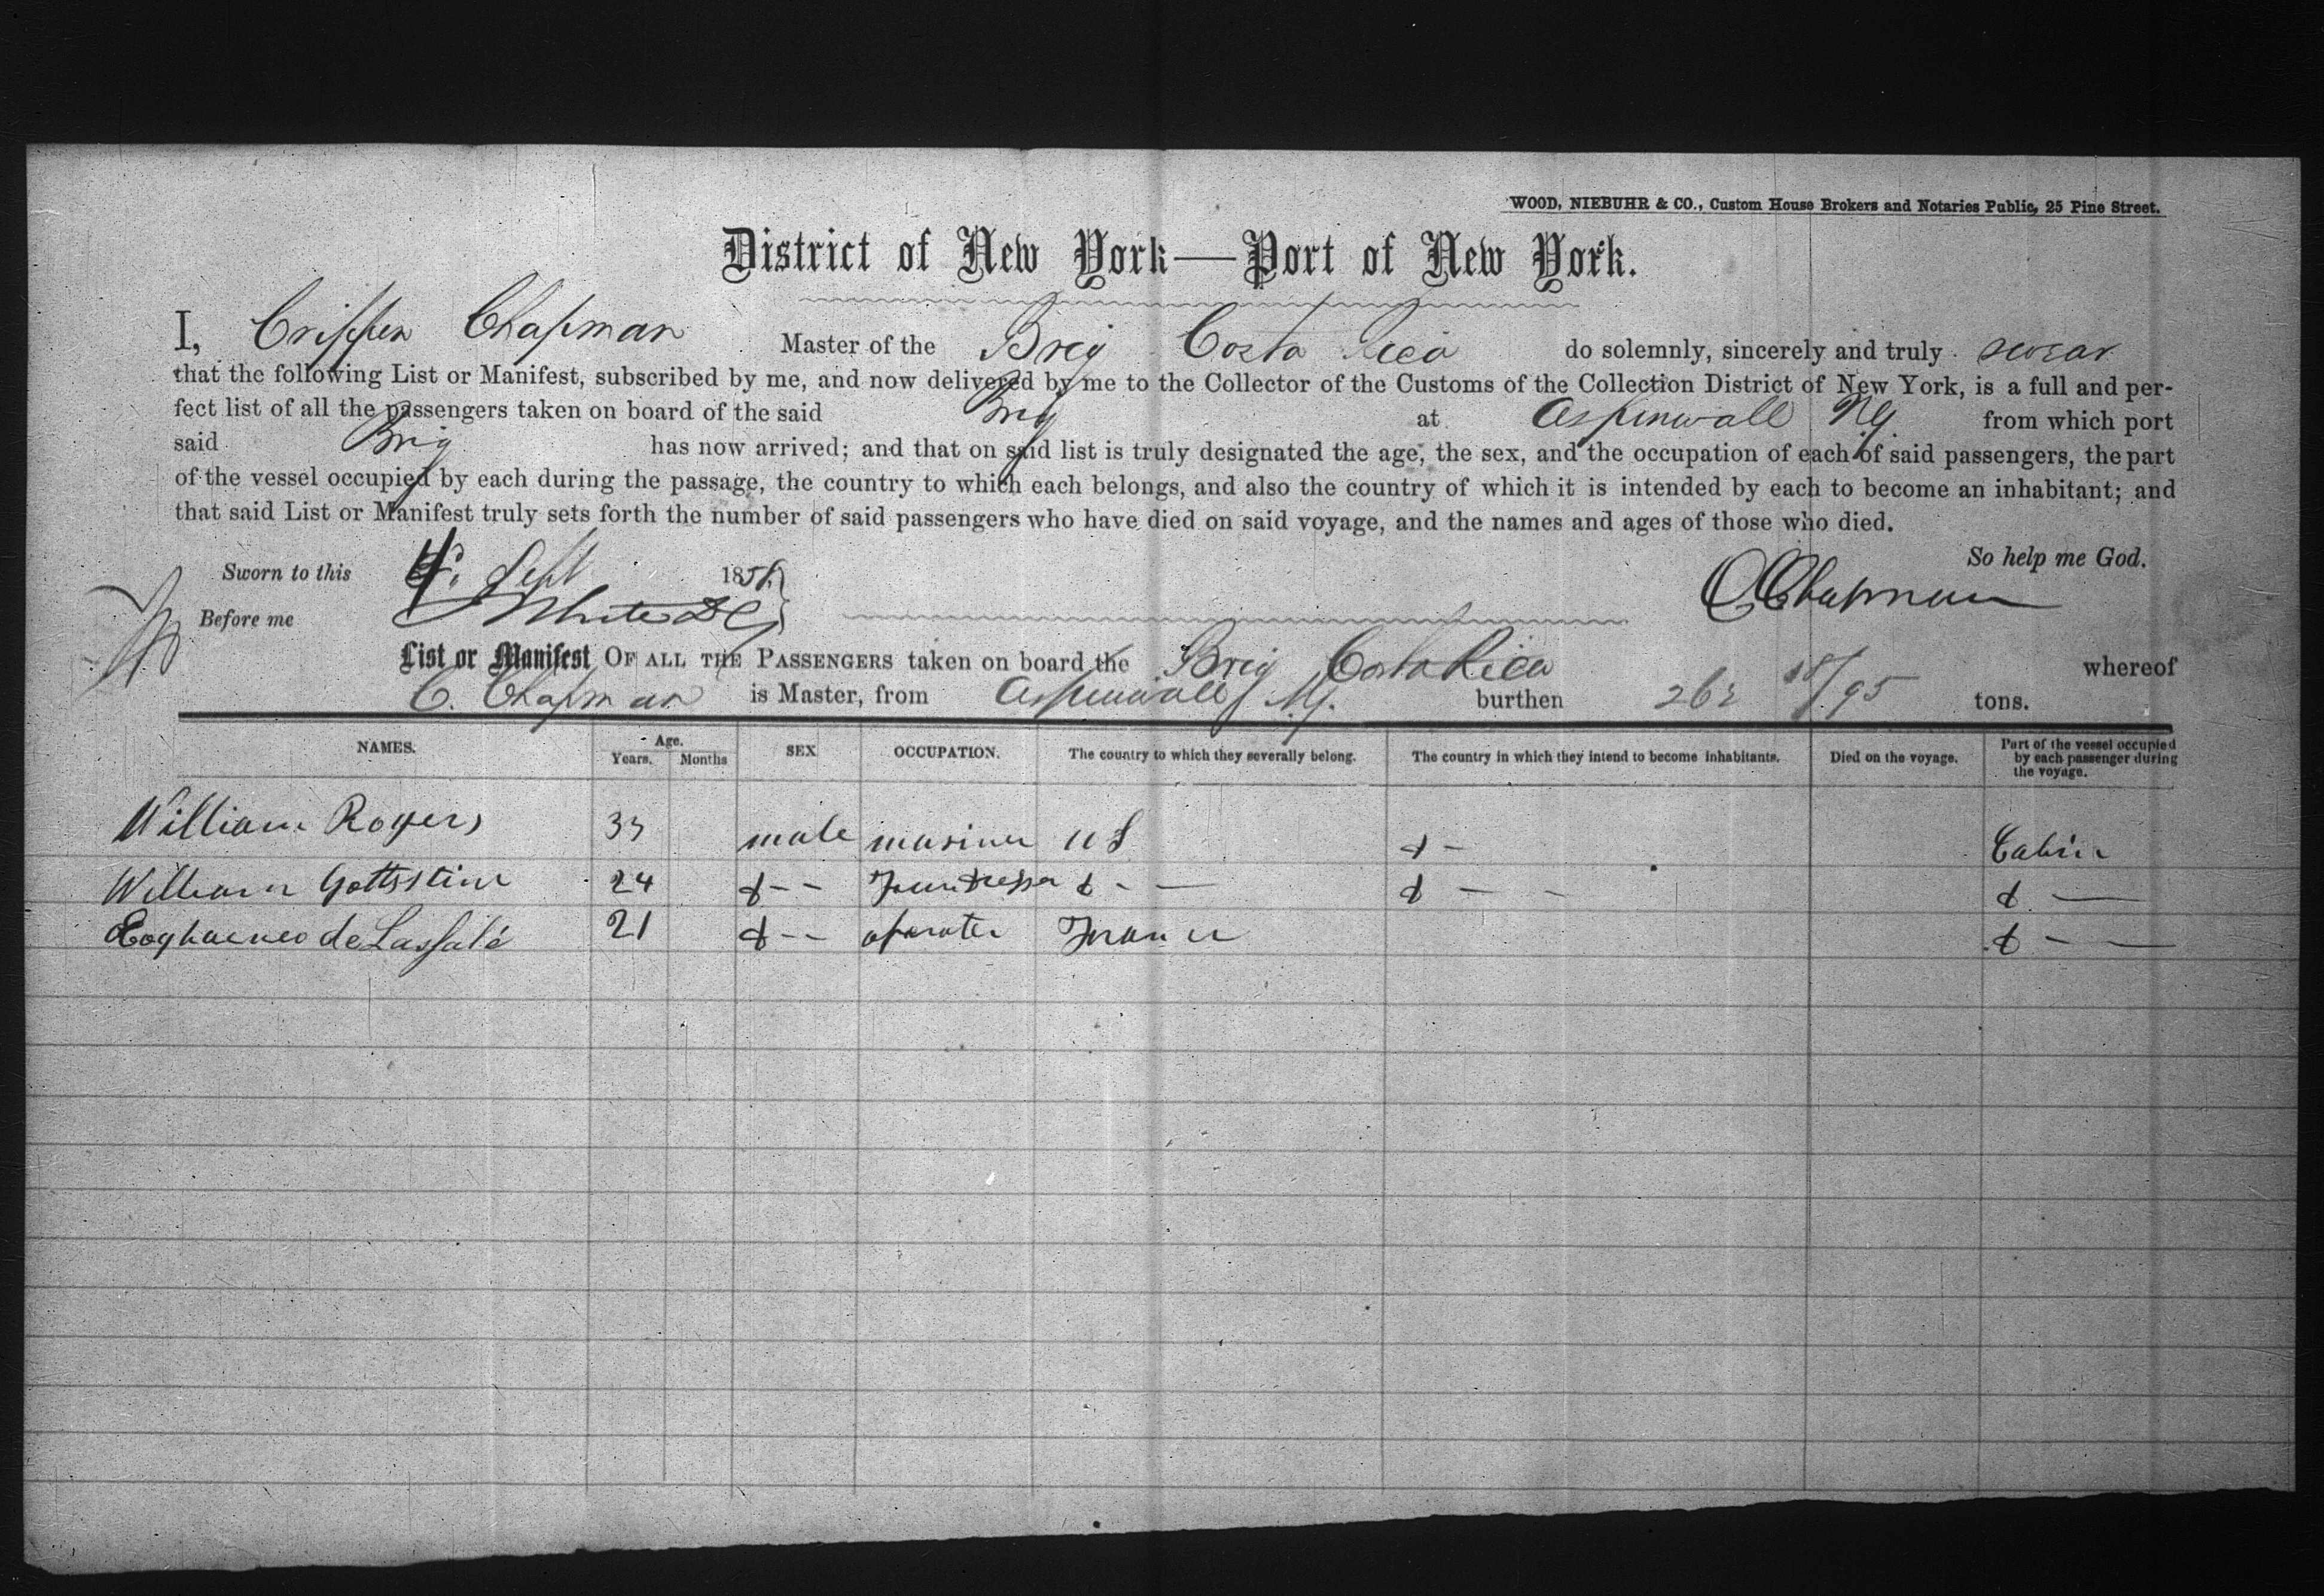 WOOD, NIEBUHR & CO., Custom House Brokers and Notaries Public, 25 Pine Street.
District of New York—Port of New York.
I, Crippen Chapman Master of the Brig Costa Rica do solemnly, sincerely and truly swear
that the following List or Manifest, subscribed by me, and now delivered by me to the Collector of the Customs of the Collection District of New York, is a full and per-
fect list of all the passengers taken on board of the said Brig at Aspinwall N.G. from which port
said Brig has now arrived; and that on said list is truly designated the age, the sex, and the occupation of each of said passengers, the part
of the vessel occupied by each during the passage, the country to which each belongs, and also the country of which it is intended by each to become an inhabitant; and
that said List or Manifest truly sets forth the number of said passengers who have died on said voyage, and the names and ages of those who died.
So help me God.
Sworn to this 4 Sept 185
C Chapman
Before me White
List or Manifest OF ALL THE PASSENGERS taken on board the Brig Costa Rica whereof
C. Chapman is Master, from Aspinwall N.G. burthen 262 /95 tons.
NAMES. Age. Years. Months SEX OCCUPATION. The country to which they severally belong. The country in which they intend to become inhabitants. Died on the voyage. Part of the vessel occupied by each passenger during the voyage.
William Rogers 33 male mariner US d - Cabin
William Gottsstine 24 d - - d - — d — - d —
de Lassalé 21 d - - operater France d - —